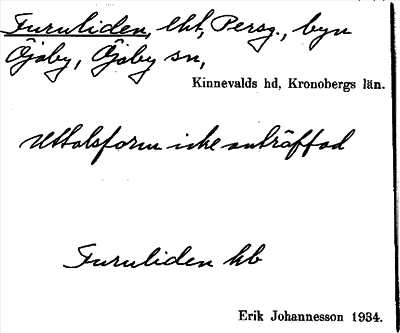 Furuliden, lht, Persg., byn
Öjaby, Öjaby sn,
Kinnevalds hd, Kronobergs län.
Uttalsform icke anträffad
Furuliden hb
Erik Johannesson 1934.